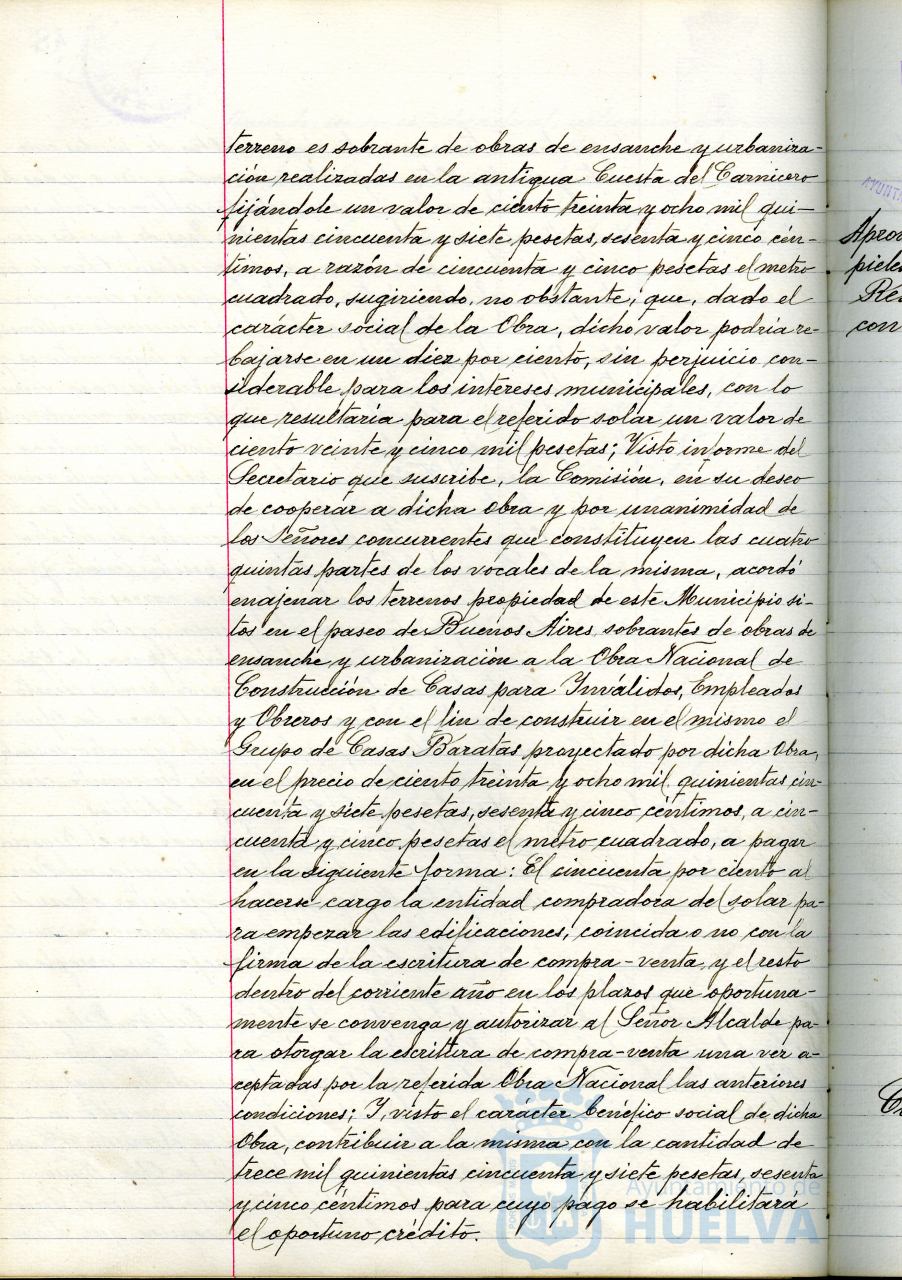 terreno es sobrante de obras de ensanche y urbaniza-
ción realizadas en la antigua Cuesta del Carnicero
fijándole un valor de ciento treinta y ocho mil qui-
nientas cincuenta y siete pesetas, sesenta y cinco cén-
timos, a razón de cincuenta y cinco pesetas el metro
cuadrado, sugiriendo, no obstante, que, dado el
carácter social de la Obra, dicho valor podría re-
bajarse en un diez por ciento, sin perjuicio con-
siderable para los intereses municipales, con lo
que resultaría para el referido solar un valor de
ciento veinte y cinco mil pesetas; Visto informe del
Secretario que suscribe, la Comisión, en su deseo
de cooperar a dicha obra y por unanimidad de
los Señores concurrentes que constituyen las cuatro
quintas partes de los vocales de la misma, acordó
enajenar los terrenos propiedad de este Municipio si-
tos en el paseo de Buenos Aires, sobrantes de obras de
ensanche y urbanización a la Obra Nacional de
Construcción de Casas para Inválidos, Empleados
y Obreros y con el fin de construir en el mismo el
Grupo de Casas Baratas proyectado por dicha Obra,
en el precio de ciento treinta y ocho mil quinientas cin-
cuenta y siete pesetas, sesenta y cinco céntimos, a cin-
cuenta y cinco pesetas el metro cuadrado, a pagar
en la siguiente forma: El cincuenta por ciento al
hacerse cargo la entidad compradora del solar pa-
ra empezar las edificaciones, coincida o no con la
firma de la escritura de compra-venta, y el resto
dentro del corriente año en los plazos que oportuna-
mente se convenga y autorizar al Señor Alcalde pa-
ra otorgar la escritura de compra-venta una vez a-
ceptadas por la referida Obra Nacional las anteriores
condiciones; Y, visto el carácter benéfico social de dicha
Obra, contribuir a la misma con la cantidad de
trece mil quinientas cincuenta y siete pesetas, sesenta
y cinco céntimos para cuyo pago se habilitará
el oportuno crédito.
Ayuntamiento de
HUELVA